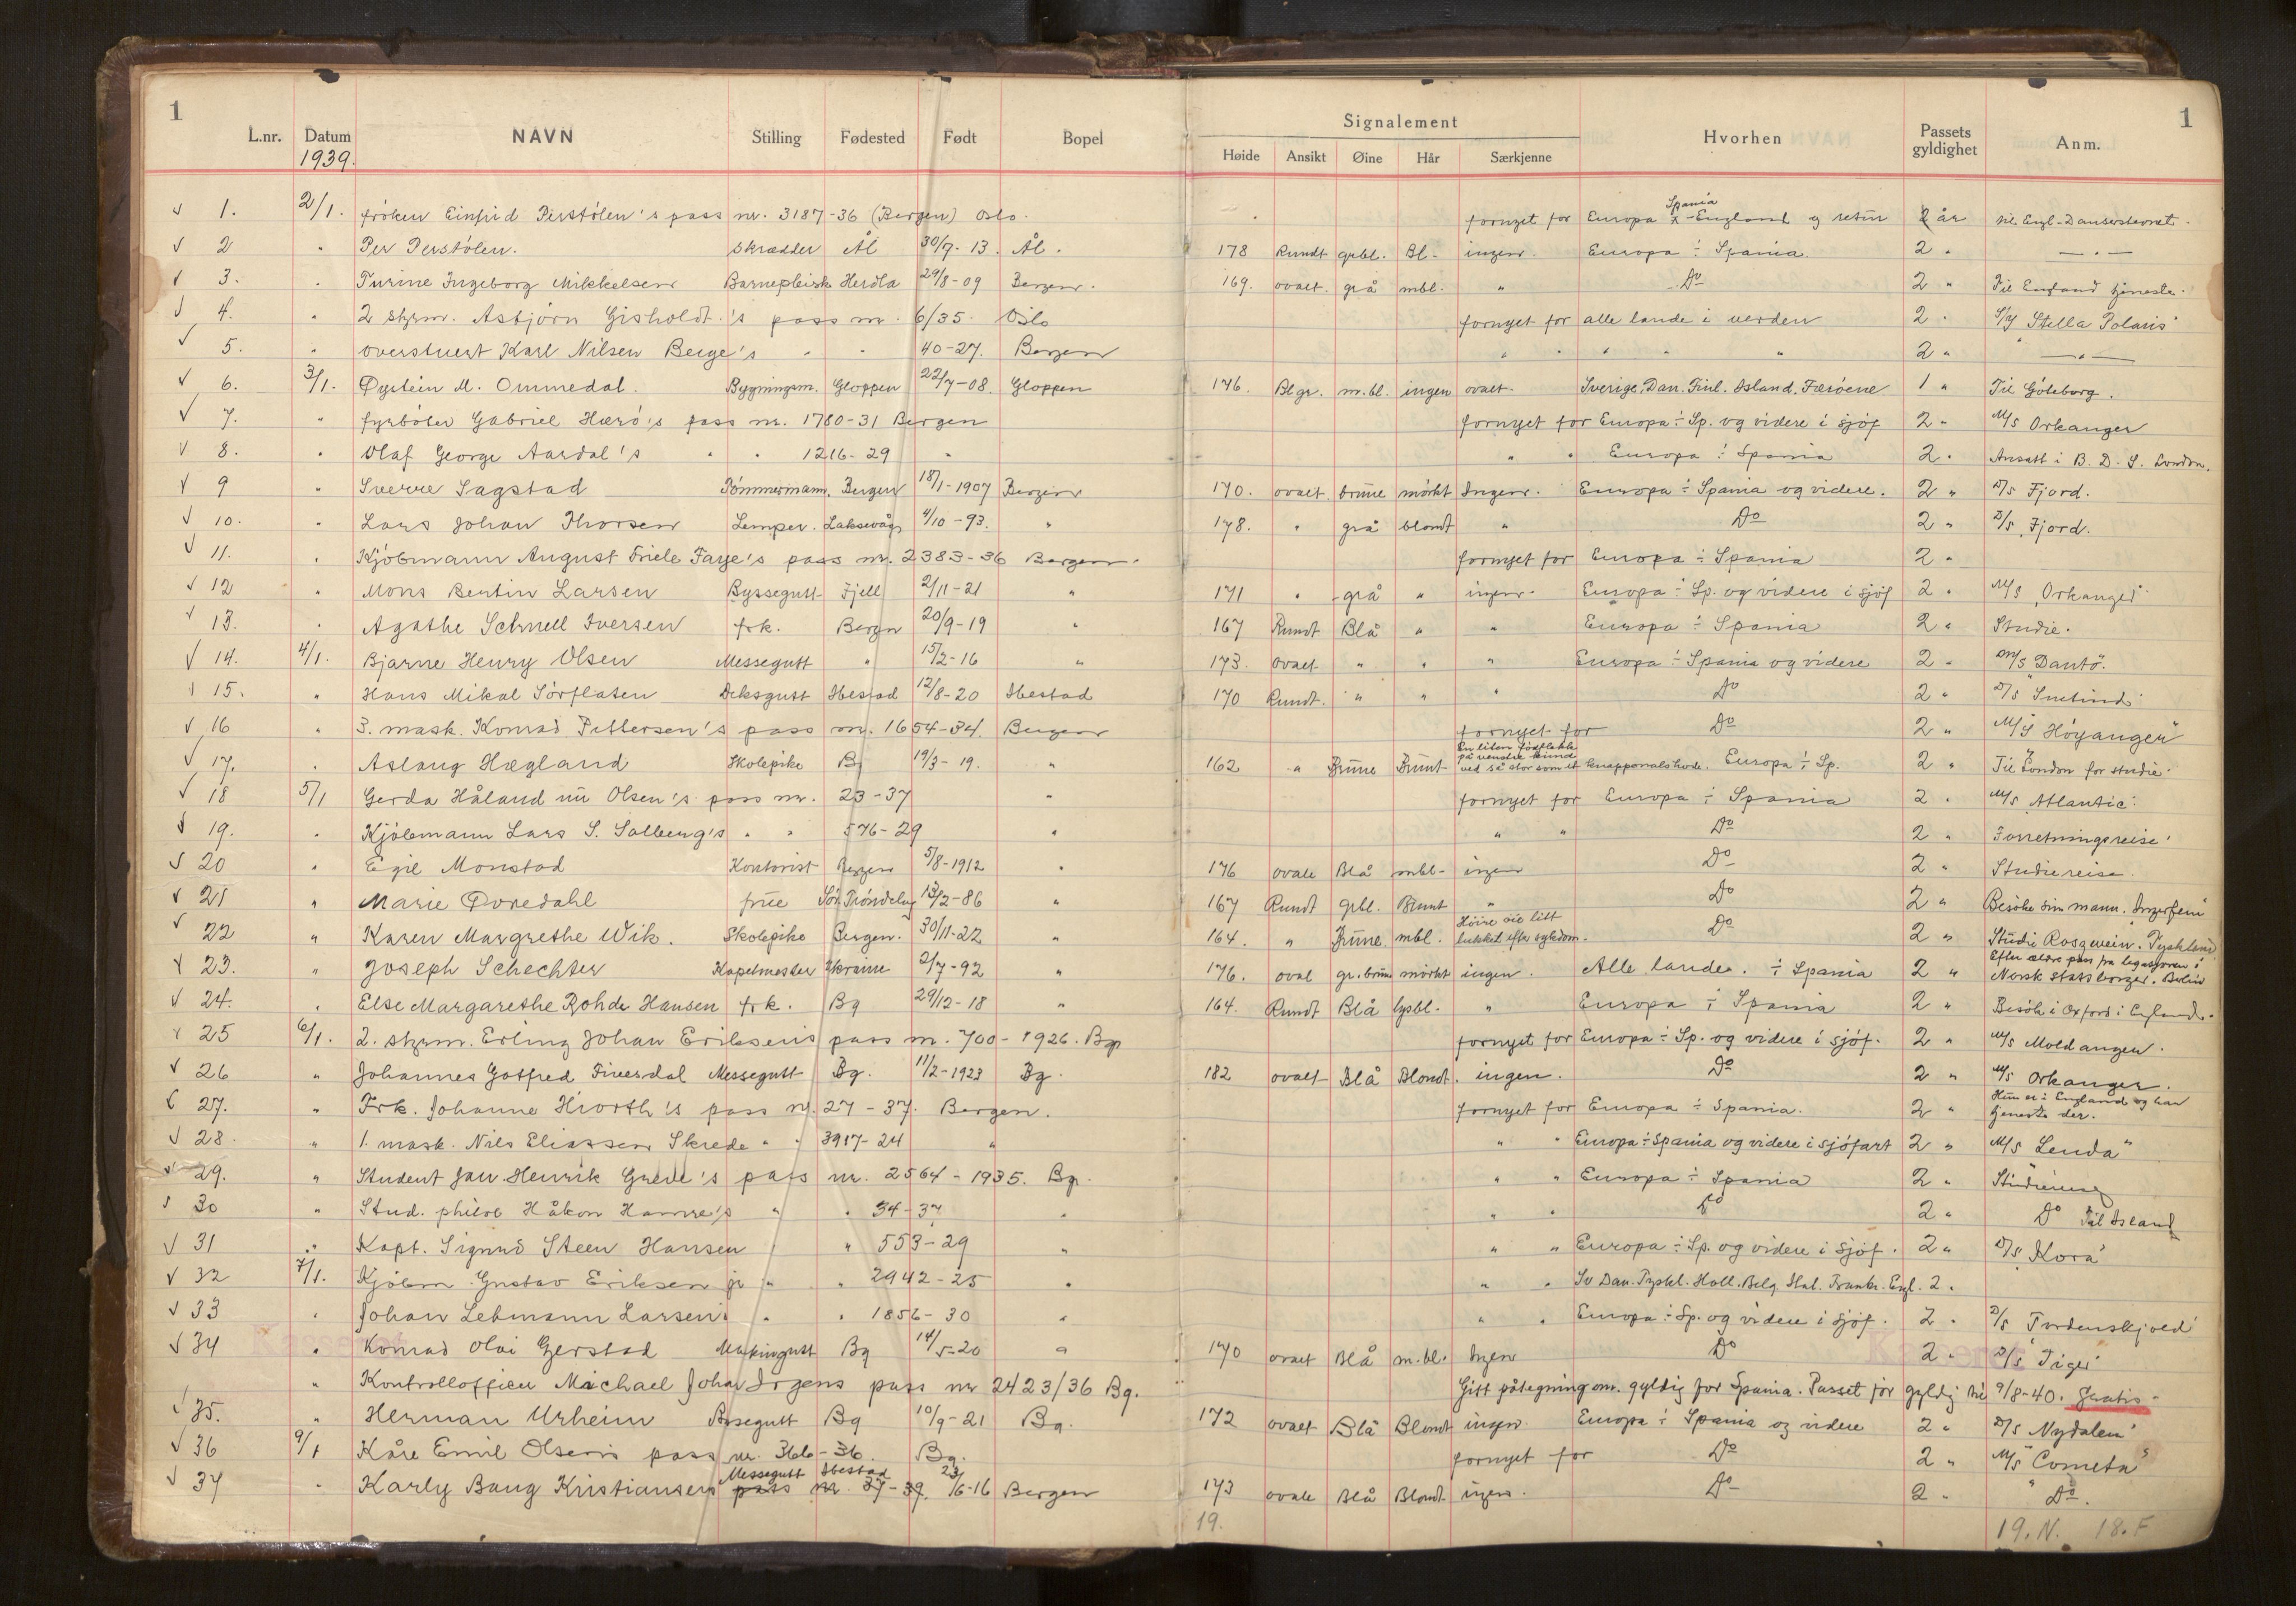 1
L.nr. Datum NAVN Stilling Fødested Født Bopel
1939.
1
Signalement
Høide Ansikt Øine Hår Særkjenne Hvorhen Passets gyldighet Anm.
1. 2/1. frøken Einfrid Perstølen's pass nr. 3187-36 (Bergen) Oslo. fornyet for Europa ÷ Spania - England og retur 2 år til Engl-
2 " Per Perstølen. Skrædder Ål 30/7-13. Ål. 178 Rundt grbl. Bl- ingen. Europa ÷ Spania. 2 " — " —
3. " Turine Ingeborg Mikkelsen Barnepleirsk Herdla 29/8-09 Bergen. 169. ovalt. grå mbl. " Do 2 " Til England tjeneste.
4. " 2 styrm. Asbjørn Gisholdt's pass nr. 6/35. Oslo fornyet for alle lande i verden 2 " S/Y Stella Polaris"
5. " overstuert Karl Nilsen Berge's " " 40-27. Bergen " " " " " 2 " — " —
6. 3/1. Øystein M. Ommedal. Bygningsm. Gloppen 22/7-08. Gloppen 176. Blgr. m.bl. ingen ovalt. Sverige, Dan. Finl. Island. Færöene 1 " Til Göteborg.
7. " fyrbøter Gabriel Hærø's pass nr. 1780-31 Bergen fornyet for Europa ÷ Sp. og videre i sjöf 2 " M/S Orkanger
8. " Olaf George Aardal's " " 1216-29 " " " Europa ÷ Spania 2 " Ansatt i B. D. S. London.
9 " Sverre Sagstad Tömmermann. Bergen 18/1-1907 Bergen 170. ovalt. brune mörkt Ingen. Europa ÷ Spania og videre. 2 " D/S Fjord.
10. " Lars Johan Thorsen Lemper. Laksevåg 4/10-93. " 178. " grå blondt " Do 2 " D/S Fjord.
11. " Kjöbmann August Friele Faye's pass nr. 2383-36 Bergen. fornyet for Europa ÷ Spania 2 "
12 " Mons Bertin Larsen Byssegutt Fjell 2/11-21 " 171 " grå " ingen. Europa ÷ Sp. og videre i sjöf 2 " M/S "Orkanger"
13. " Agathe Schnell Iversen frk. Bergen 20/9-19 " 167 Rundt Blå " " Europa ÷ Spania 2 " Studie.
14. 4/1. Bjarne Henry Olsen Messegutt " 15/2-16 " 173. ovalt " " " Europa ÷ Spania og videre 2 "
15. " Hans Mikal Sörflaten Deksgutt Ibestad 12/8-20 Ibestad 170 Rundt. " " " Do 2 " D/S Snetind"
16 " 3. mask. Konrad Pettersen's pass nr. 1654-34. Bergen fornyet for Do 2 " M/S Höyanger"
17. " Aslaug Hægland Skolepike Bg 19/3-19. " 162 " Brune Brunt En liten födflekk på venstre kind ved så stor som et knappenalshode. Europa ÷ Sp. 2 " Til London for studie.
18 5/1 Gerda Håland nu Olsen's pass nr. 23-37 " fornyet for Europa ÷ Spania 2 " M/S Atlantic"
19. " Kjöbmann Lars S. Solberg's " " 576-29 " " " Do 2 " Forretningsreise.
20 " Egil Monstad Kontorist Bergen 5/8-1912 " 176 ovale Blå mbl- ingen Do 2 " Studiereise.
21 " Marie Dvredahl frue Sör Tröndelag 13/2-86 " 167 Rundt grbl. Brunt " Do 2 " Besöke sin mann.
22 " Karen Margrethe Wik. Skolepike Bergen. 30/11-22 " 164. " Brune mbl. Höire öie litt lukket efter sykdom. Do 2 " Studie Tyskland
23. " Joseph Schechter Kapelmester Ukraine 2/7-92 " 176. oval gr.brune mörkt ingen. Alle lande. ÷ Spania 2 " Efter ældre pass fra legasjonen i Berlin Norsk statsborger.
24. " Else Margarethe Rohde Hansen frk. Bg 29/12-18 " 164. Rundt Blå lysbl. " Europa ÷ Spania 2 " Besök i Oxford i England.
25 6/1. 2. styrm. Erling Johan Eriksens pass nr. 700-1926. Bg fornyet for Europa ÷ Sp. og videre i sjöf. 2 " M/S Moldanger.
26 " Johannes Gotfred Fiverdal Messegutt Bg. 11/2-1923 Bg. 182 ovalt Blå Blondt. ingen. Do 2 " M/S Orkanger.
27. " Frk. Johanne Hiorth's pass nr. 27-37. Bergen. fornyet for Europa ÷ Spania. 2 " Hun er i England og har tjeneste der.
28. " 1. mask. Nils Eliassen Skrede " " 3917-24 " " " Europa ÷ Spania og videre i sjöfart 2 " M/S Lenda"
29. " Student Jan Henrik Greve's pass nr. 2564-1935. Bg. " " Europa ÷ Spania 2 "
30 " Stud. philos Håkon Hamre's " " 34-37 " " " Do 2 " Do Til Island
31 " Kapt. Sigurd Steen Hansen " 553-29 " " " Europa ÷ Sp. og videre i sjöf. 2 " D/S "Kora"
32 7/1. Kjöbm. Gustav Eriksen jr " " 2942-25 " " " Sv Dan. Tyskl. Holl. Belg. Ital. Frankr. Engl. 2 "
33 " Johan Lehmann Larsens " " 1856-30 " " " Europa ÷ Sp. og videre i sjöf. 2 " D/S Tordenskjold"
34 " Konrad Olai Gjerstad Maskingutt Bg 14/5-20 " 170 ovalt Blå m.bl. Ingen Do 2 " D/S "Tiger"
" Kontrollofficer Michael Johan Irgens pass nr 2423/36 Bg. Gitt påtegning om. gyldig for Spania. Passet för gyldig til 9/8-40. Gratis-
35. " Herman Urheim Byssegutt Bg 10/9-21 Bg. 172 ovalt Blå Blondt ingen. Europa ÷ Spania og videre 2 " D/S Nydalen"
36 9/1 Kåre Emil Olsens pass nr. 366-36. Bg. fornyet for Do 2 " M/S "Cometa"
37 " Karly Baug Kristiansen Messegutt Ibestad pass nr. 37-39. 23/6-16 Bergen 173 ovale Blå Blondt ingen. Do 2 " " Do.
19. 19. N. 18. F